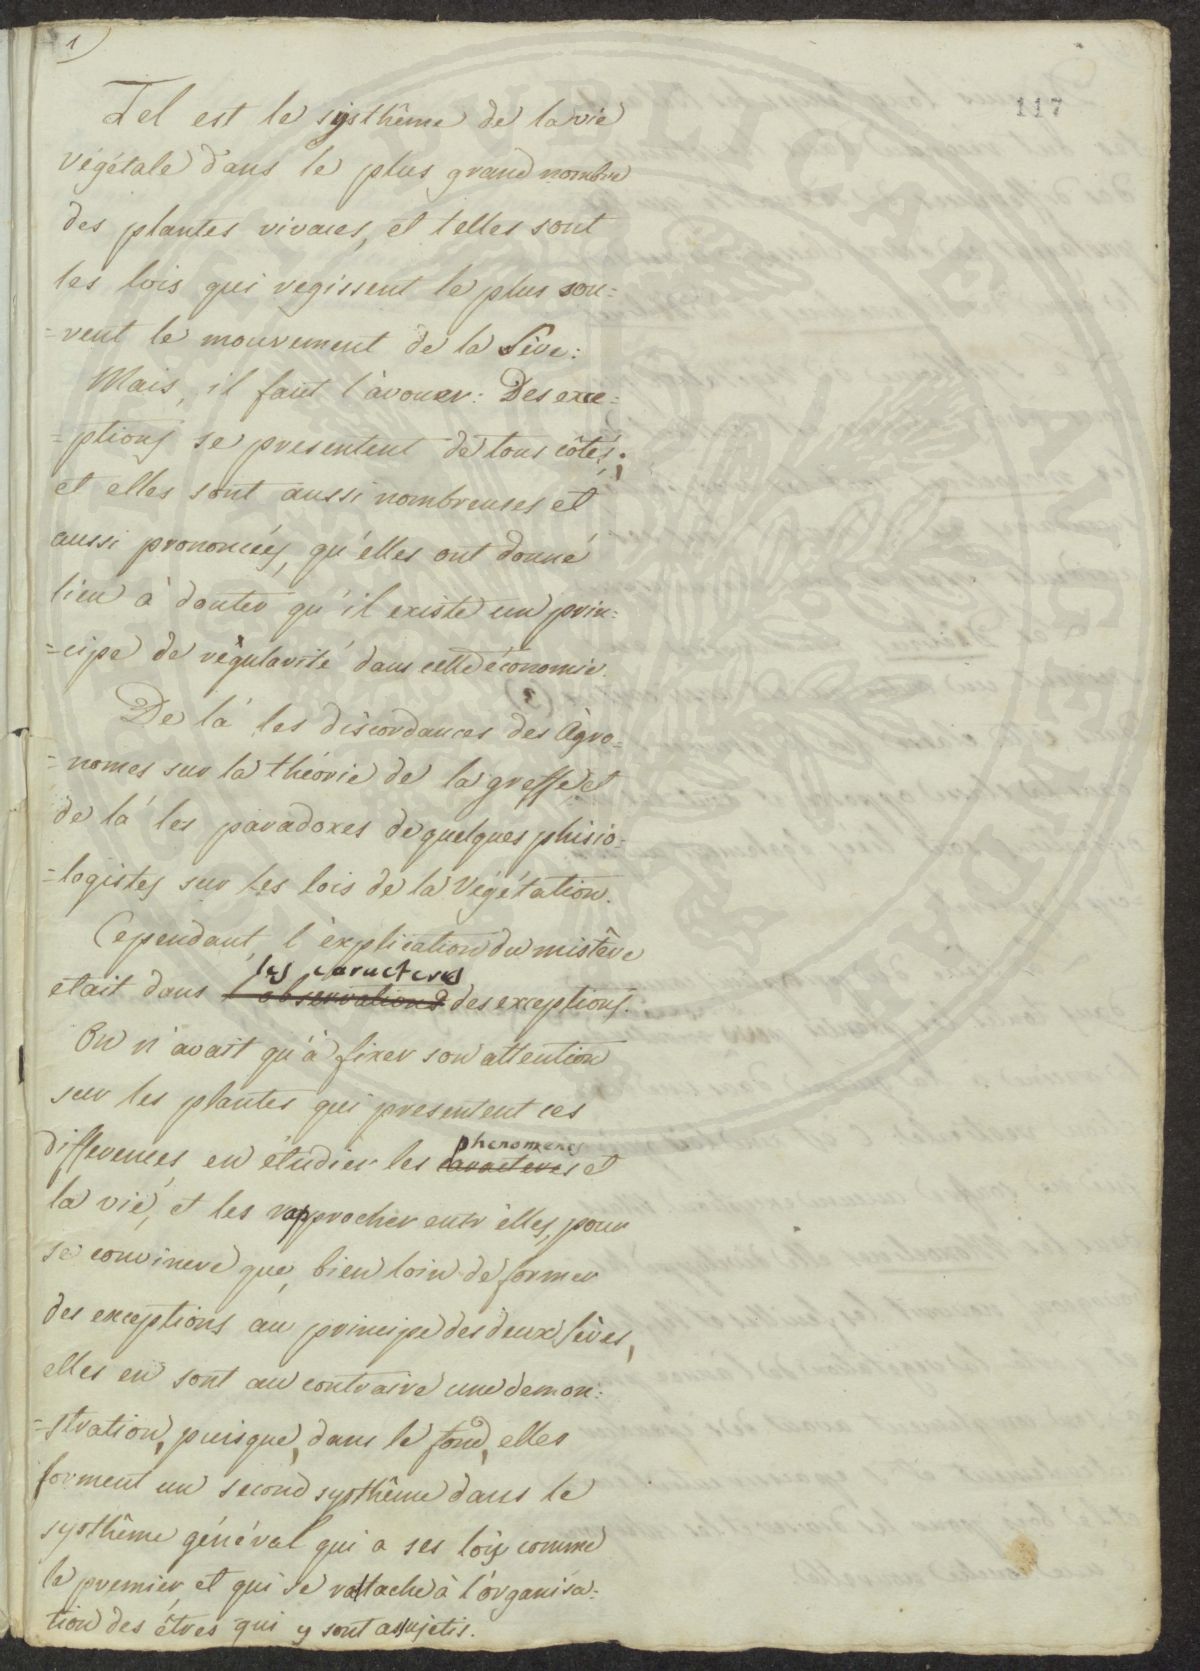 1)
117
Tel est le systhême de la vie
végétale dans le plus grand nombre
des plantes vivaces, et telles sont
les lois qui regissent le plus sou=
=vent le mouvement de la Sève:
Mais, il faut l'avouer: Des exce=
=ptions se presentent de tous côtés;
et elles sont aussi nombreuses et
aussi prononcées, qu'elles ont donné
lieu à douter qu'il existe un prin=
=cipe de régularité dans cette économie.
De là les discordances des Agro=
=nomes sur la théorie de la greffe et
de là les paradoxes de quelques phisio=
=logistes sur les lois de la Végétation.
Cependant, l'explication du mistère
les caracteres
etait dans l'observation des exceptions.
On n'avait qu'à fixer son attention
sur les plantes qui presentent ces
phenomenes
differences, en étudier les caracteres et
la vie, et les rapprocher entr'elles, pour
se convincre que, bien loin de former
des exceptions au principe des deux sèves,
elles en sont au contraire une demon=
=stration, puisque, dans le fond, elles
forment un second systhême dans le
systhême général qui a ses lois comme
le premier, et qui se rattache à l'organisa=
tion des êtres qui y sont assujetis.